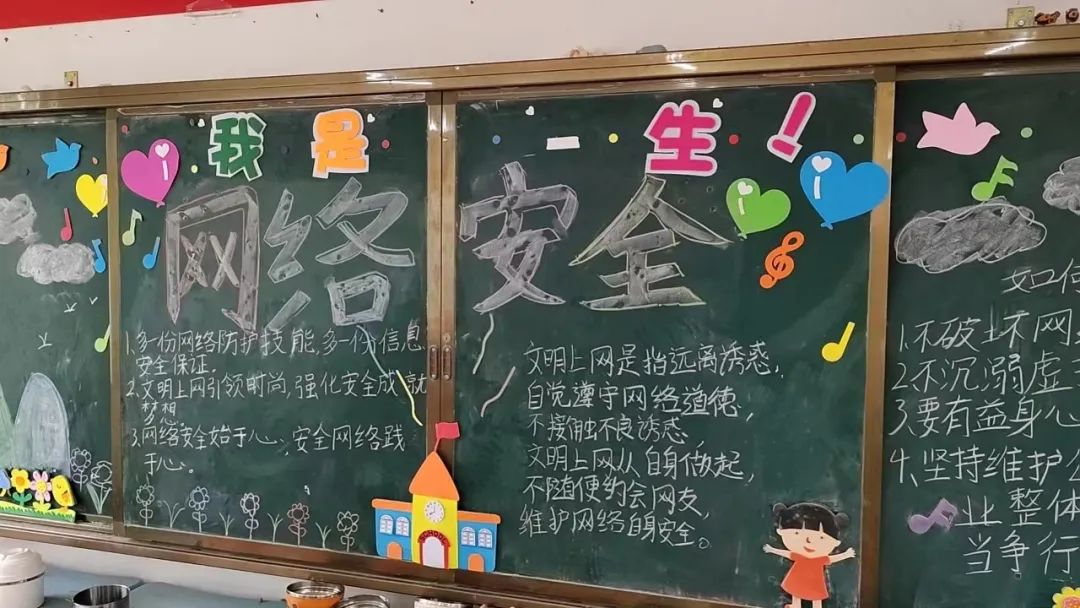 我是一生！
网络安全
1.多份网络防护技能,多一份信息
安全保证.
2.文明上网引领时尚,强化安全成就
梦想.
3.网络安全始于心;安全网络践
于心。
文明上网是指远离诱惑,
自觉遵守网络道德,
不接触不良诱惑,
文明上网从自身做起,
不随便约会网友,
维护网络自身安全。
如何
1.不破坏网
2.不沉溺虚
3.要有益身心
4.坚持维护
业整体
当争行